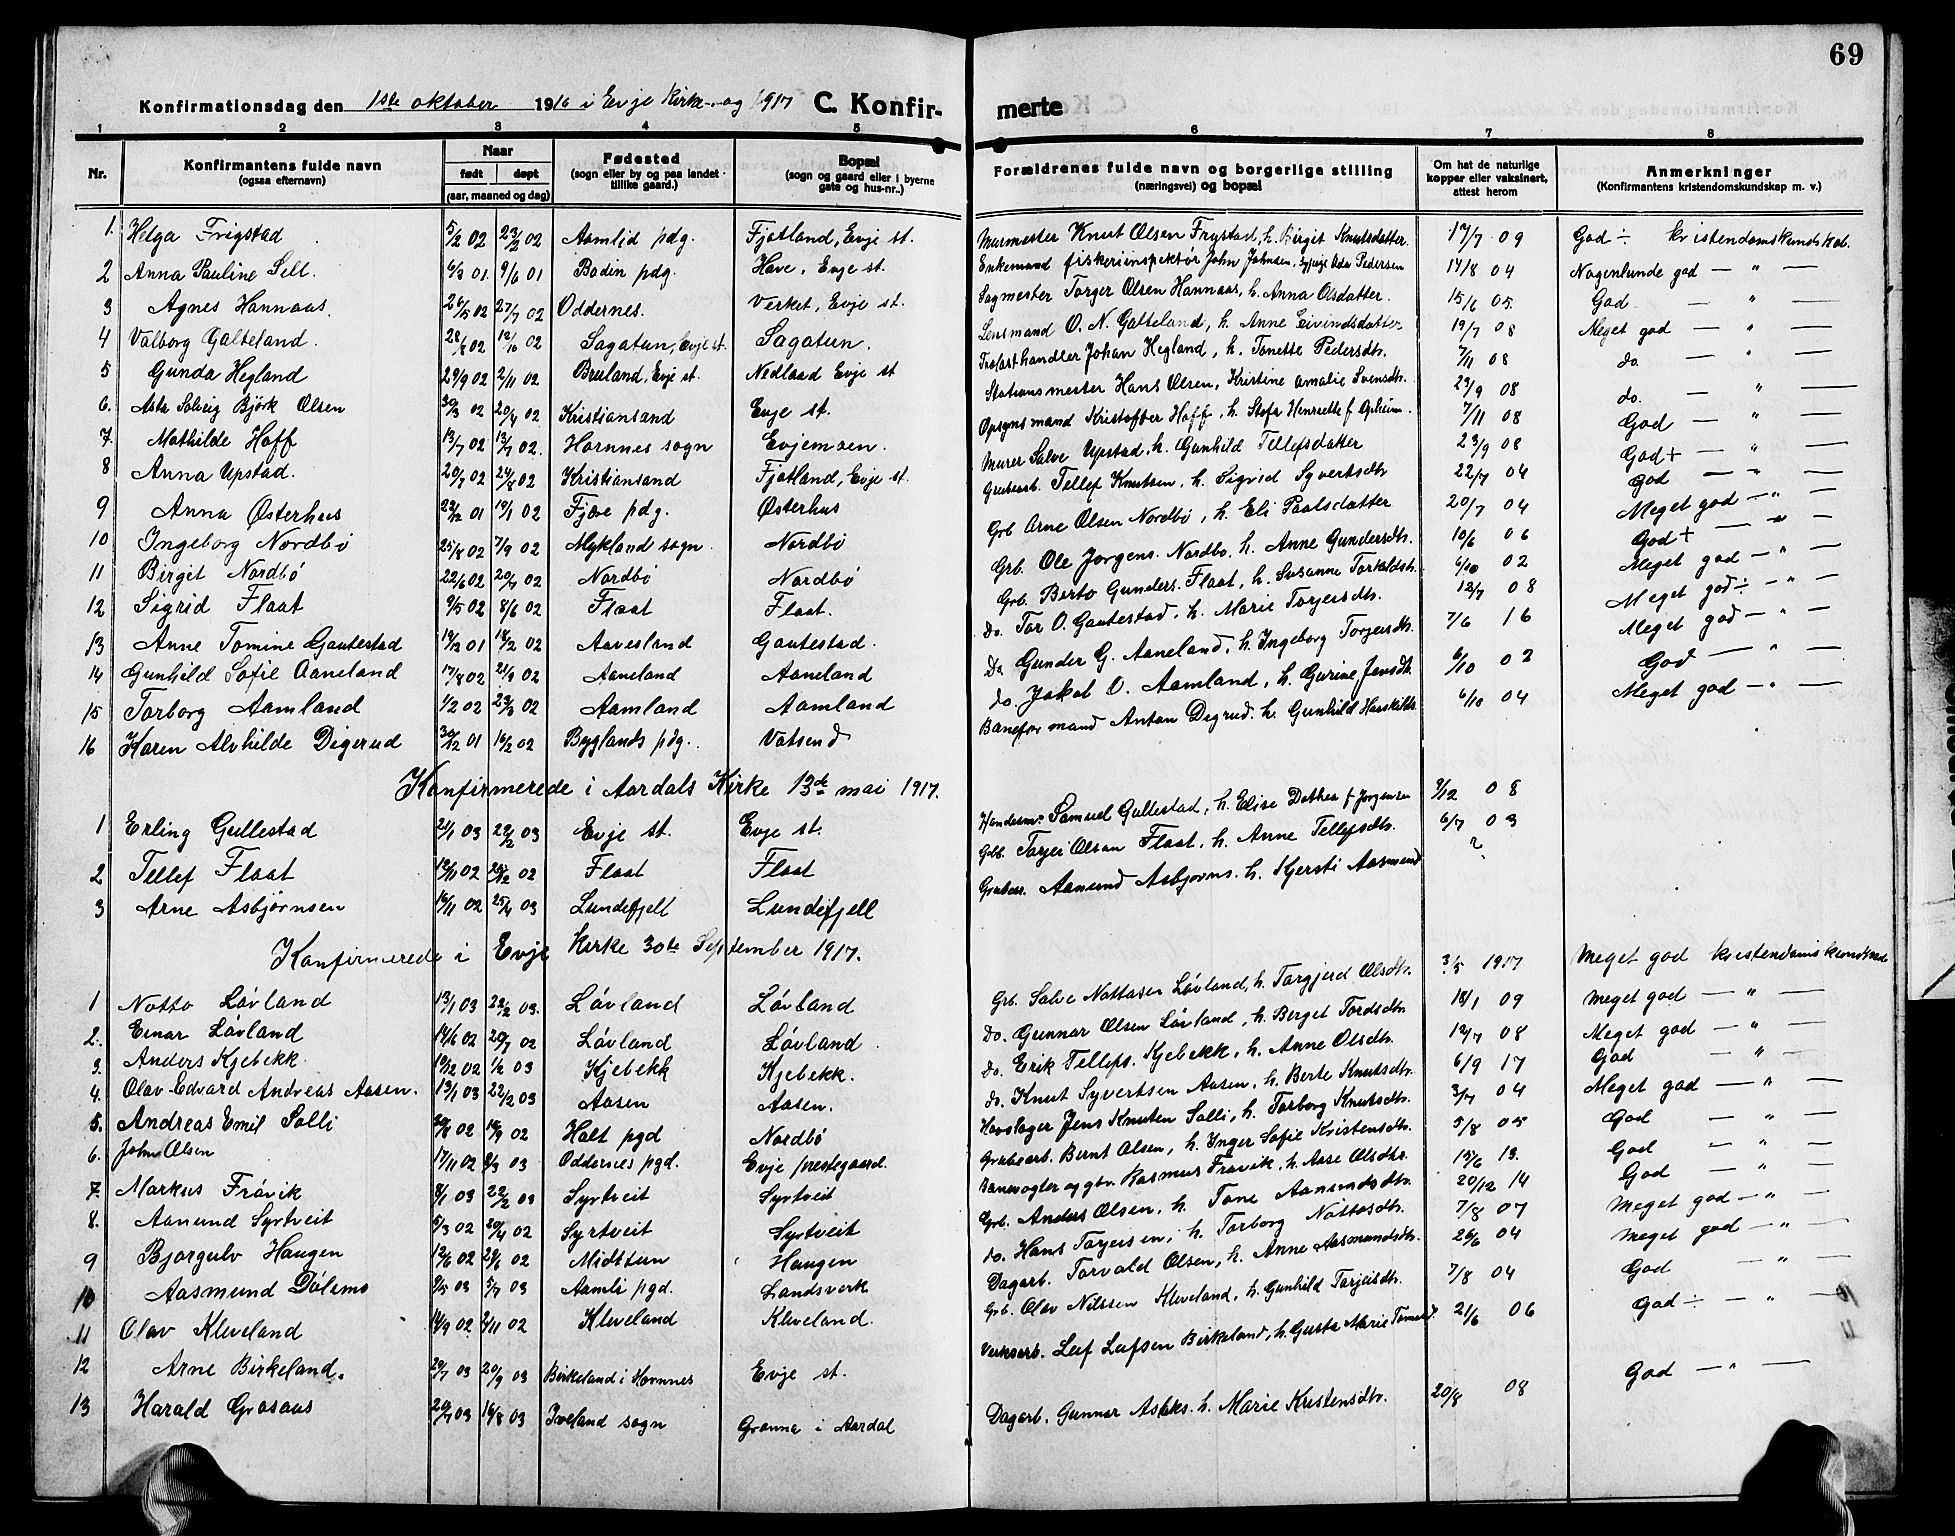 69
Konfirmationsdag den 1ste oktober 1916 i Evje Kirke og 1917 C. Konfirmerte
1 2 3 4 5 6 7 8
Nr. Konfirmantens fulde navn (ogsaa efternavn) Naar født døpt (aar, maaned og dag) Fødested (sogn eller by og paa landet tillike gaard.) Bopæl (sogn og gaard eller i byerne gate og hus-nr..) Forældrenes fulde navn og borgerlige stilling (næringsvei) og bopæl Om hat de naturlige kopper eller vaksinert, attest herom Anmerkninger (Konfirmantens kristendomskundskap m. v.)
1. Helga Frigstad 5/2 02 23/2 02 Aamlid pdg. Fjotland, Evje st. Murmester Knut Olsen Frystad, h. Birgit Knutsdatter. 17/7 09 God ÷ kristendomskundskab.
2 Anna Pauline Selt. 6/3 01. 9/6 01 Bodin pdg. Have, Evje st. Enkemand fiskeriinspektør John Johnsen, Oda Pedersen 14/8 04 Nogenlunde god — " —
3 Agnes Hannaas. 26/5 02 27/7 02 Oddernes. Verket, Evje st. Sagmester Torger Olsen Hannaas, h. Anna Olsdatter. 15/6 05. God. — " —
4 Valborg Galteland. 28/8 02 12/10 02 Sagatun, Evje st. Sagatun. Lensmand O. N. Galteland, h. Anne Eivindsdatter 19/7 08 Meget god — " —
5 Gunda Hegland 29/9 02 2/11 02 Bruland, Evje st. Nedlaad Evje st Johan Hegland, h. Tonette Pedersdtr. 7/11 08 do. — " —
6. Asta Solveig Bjørk Olsen 30/3 02 20/4 02 Kristiansand Evje st. Stationsmester Hans Olsen, Kristine Amalie Svensdtr. 29/9 08 do. — " —
7. Mathilde Hoff 13/7 02 13/7 02. Hornnes sogn Evjemoen. Opsynsmand Kristoffer Hoff, h. Stefa Henriette f. Opheim. 7/11 08 God — " —
8 Anna Upstad. 20/7 02 24/8 02 Kristiansand Fjotland, Evje st. Murer Salve Upstad, h. Gunhild Tellefsdatter 23/9 08 God + — " —
9 Anna Østerhus 22/12 01 19/1 02 Fjære pdg. Østerhus Grubearb. Tellef Knutsen, h. Sigrid Syvertsdtr 22/7 04 God — " —
10 Ingeborg Nordbø 25/8 02 7/9 02 Mykland sogn. Nordbø Grb Arne Olsen Nordbø, h. Eli Paalsdatter 20/7 04 Meget god — " —
11 Birgit Nordbø 22/6 02 20/7 02 Nordbø Nordbø Grb. Ole Jorgens. Nordbo, h. Anne Gundersdtr. 10/6 06 God + — " —
12 Sigrid Flaat 9/5 02 8/6 02 Flaat Flaat. Grb. Berto Gunders. Flaat, h. Susanne Torkeldstr. 6/10 02 Meget god — " —
13 Anne Tomine Gautestad 19/12 01 18/2 02 Aavesland Gautestad. Do. Tor O. Gautestad, h. Marie Torjersdtr. 12/7 08 Meget god ÷ — " —
14 Gunhild Sofie Aaneland 17/8 02 21/9 02 Aaneland Aaneland Do Gunder G. Aaneland, h. Ingeborg Torjersdtr. 7/6 16 Meget god — " —
15 Torborg Aamland 1/2 02 23/3 02 Aamland Aamland do. Jakob O. Aamland, h. Gurine Jensdtr. 6/10 02 God — " —
16 Karen Alvhilde Digerud 30/12 01 16/2 02 Byglands pdg. Vatsend Baneformand Anton Digrud. h. Gunhild 6/10 04 Meget god — " —
Konfirmerede i Aardals Kirke 13de mai 1917.
1 Erling Gullestad 21/1 03 22/2 03 Evje st. Evje st. Handesm. Samuel Gullestad, h. Elise Dothea f Jorgensen 9/12 08
2 Tellef Flaat 12/11 02 26/12 02 Flaat Flaat Gdb. Torjei Olsen Flaat, h. Anne Tellefsdtr. 6/7 03
3 Arne Asbjørnsen 16/11 02 25/4 03 Lundefjell Lundefjell Grubear. Aanund Asbjorns. h. Kjersti Aasmund ?
Konfirmerede i Evje Kirke 30te September 1917.
1 Notto Løvland 13/1 03 22/2 03. Løvland Løvland Grb. Salve Nottosen Løvland, h. Torgjerd Olsdtr. 3/5 1917 Meget god kristendomskundskab
2. Einar Løvland 14/6 02 20/7 02 Løvland Løvland. Do. Gunnar Olsen Løvland, h. Berget Tordsdtr. 18/1 09 Meget god — " —
3. Anders Kjebekk. 19/12 02 1/2 03 Kjebekk Kjebekk. Do. Erik Tellefs. Kjebekk, h. Anne Olsdtr. 12/7 08 Meget god — " —
4. Olav Edvard Andreas Aasen. 13/1 03 22/2 03 Aasen Aasen. do. Knut Syvertsen Aasen, h. Berte Knutsdtr. 6/9 17 God — " —
5. Andreas Emil Solli 30/8 02 18/9 02 Holt pgd Nordbø Jens Knuten Solli, h. Torborg Knutsdtr. 3/7 04 Meget god — " —
6. John Olsen 17/11 02 8/3 03 Oddernes pgd. Evje prestegaard. Grubearb. Bernt Olsen, h. Inger Sofie Kristensdtr. 5/8 05 God — " —
7. Markus Frøvik 8/1 03 22/2 03 Syrtveit Syrtveit Banevogter og gbr. Rasmus Frøvik, h. Aase Olsdtr. 13/6 13. God — " —
8. Aanund Syrtveit 5/3 02 20/4 02 Syrtveit Syrtveit Grb. Anders Olsen, h. Tone Aanundsdtr. 20/12 14 God — " —
9 Bjorgulv Haugen 12/6 02 29/6 02 Midttun Haugen do. Hans Torjersen, h. Torborg Nottosdtr. 7/8 07 Meget god — " —
10 Aasmund Dølemo 9/5 03 5/7 03 Aamli pgd. Landsverk Dagarb. Torvald Olsen, h. Anne Aasmundsdtr. 26/6 04 Meget god — " —
11 Olav Kleveland 14/9 02 2/11 02 Kleveland Kleveland. Grb. Olav Nilssen Kleveland, h. Gunhild Torjeisdtr. 7/8 04 God — " —
12 Arne Birkeland. 29/7 03 20/9 03 Birkeland i Hornnes Evje st. Verksarb. Leif Leifsen Birkeland, h. Gusta Marie 21/6 06 God ÷ — " —
13 Harald Grosaas 20/7 03 16/8 03 Iveland sogn Gronna i Aardal Dagarb. Gunnar Aslaks. h. Marie Kristensdtr. 20/8 08 God — " —